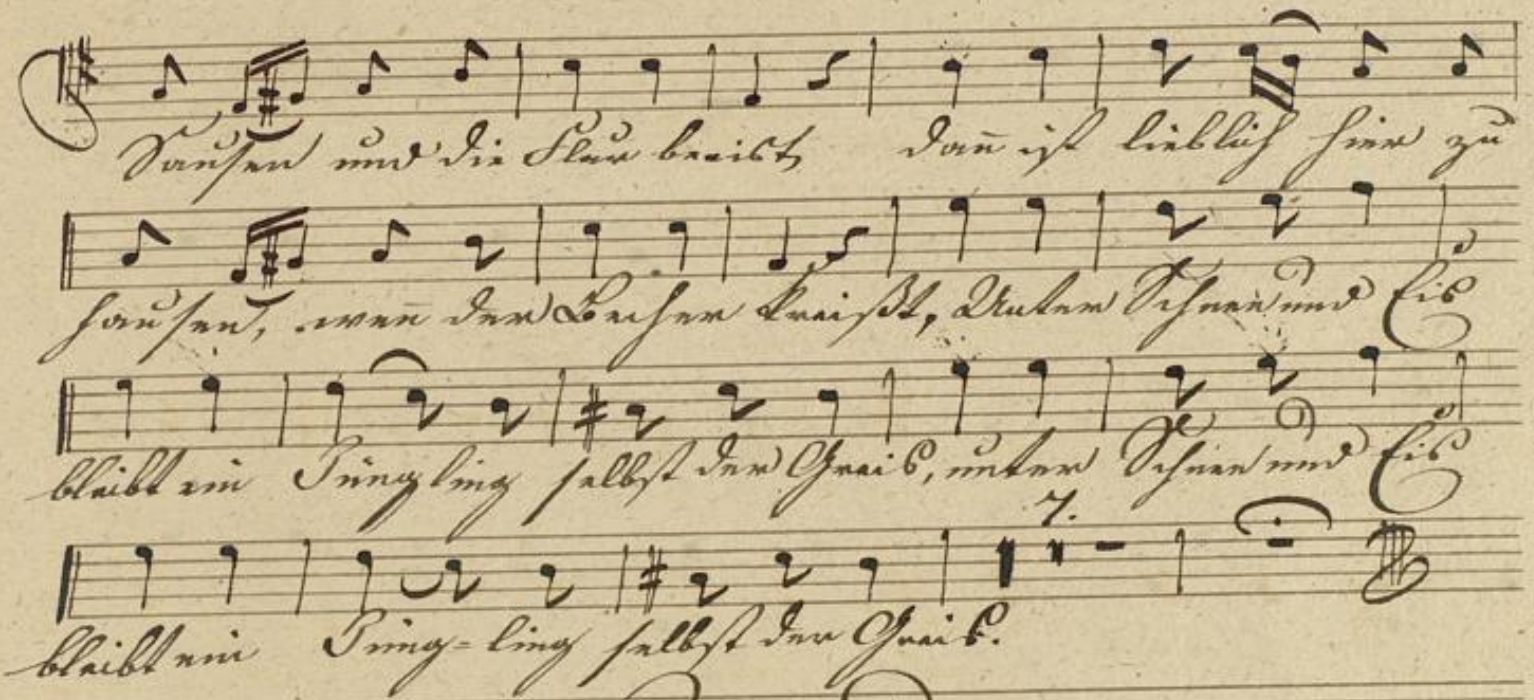 Sausen und die Flur beeist, dañ ist lieblich hier zu
hausen, weñ der Becher kreißt, Unter Schnee und Eis
bleibt ein Jüngling selbst der Greis, unter Schnee und Eis
7.
bleibt ein Jüng-ling selbst der Greis.